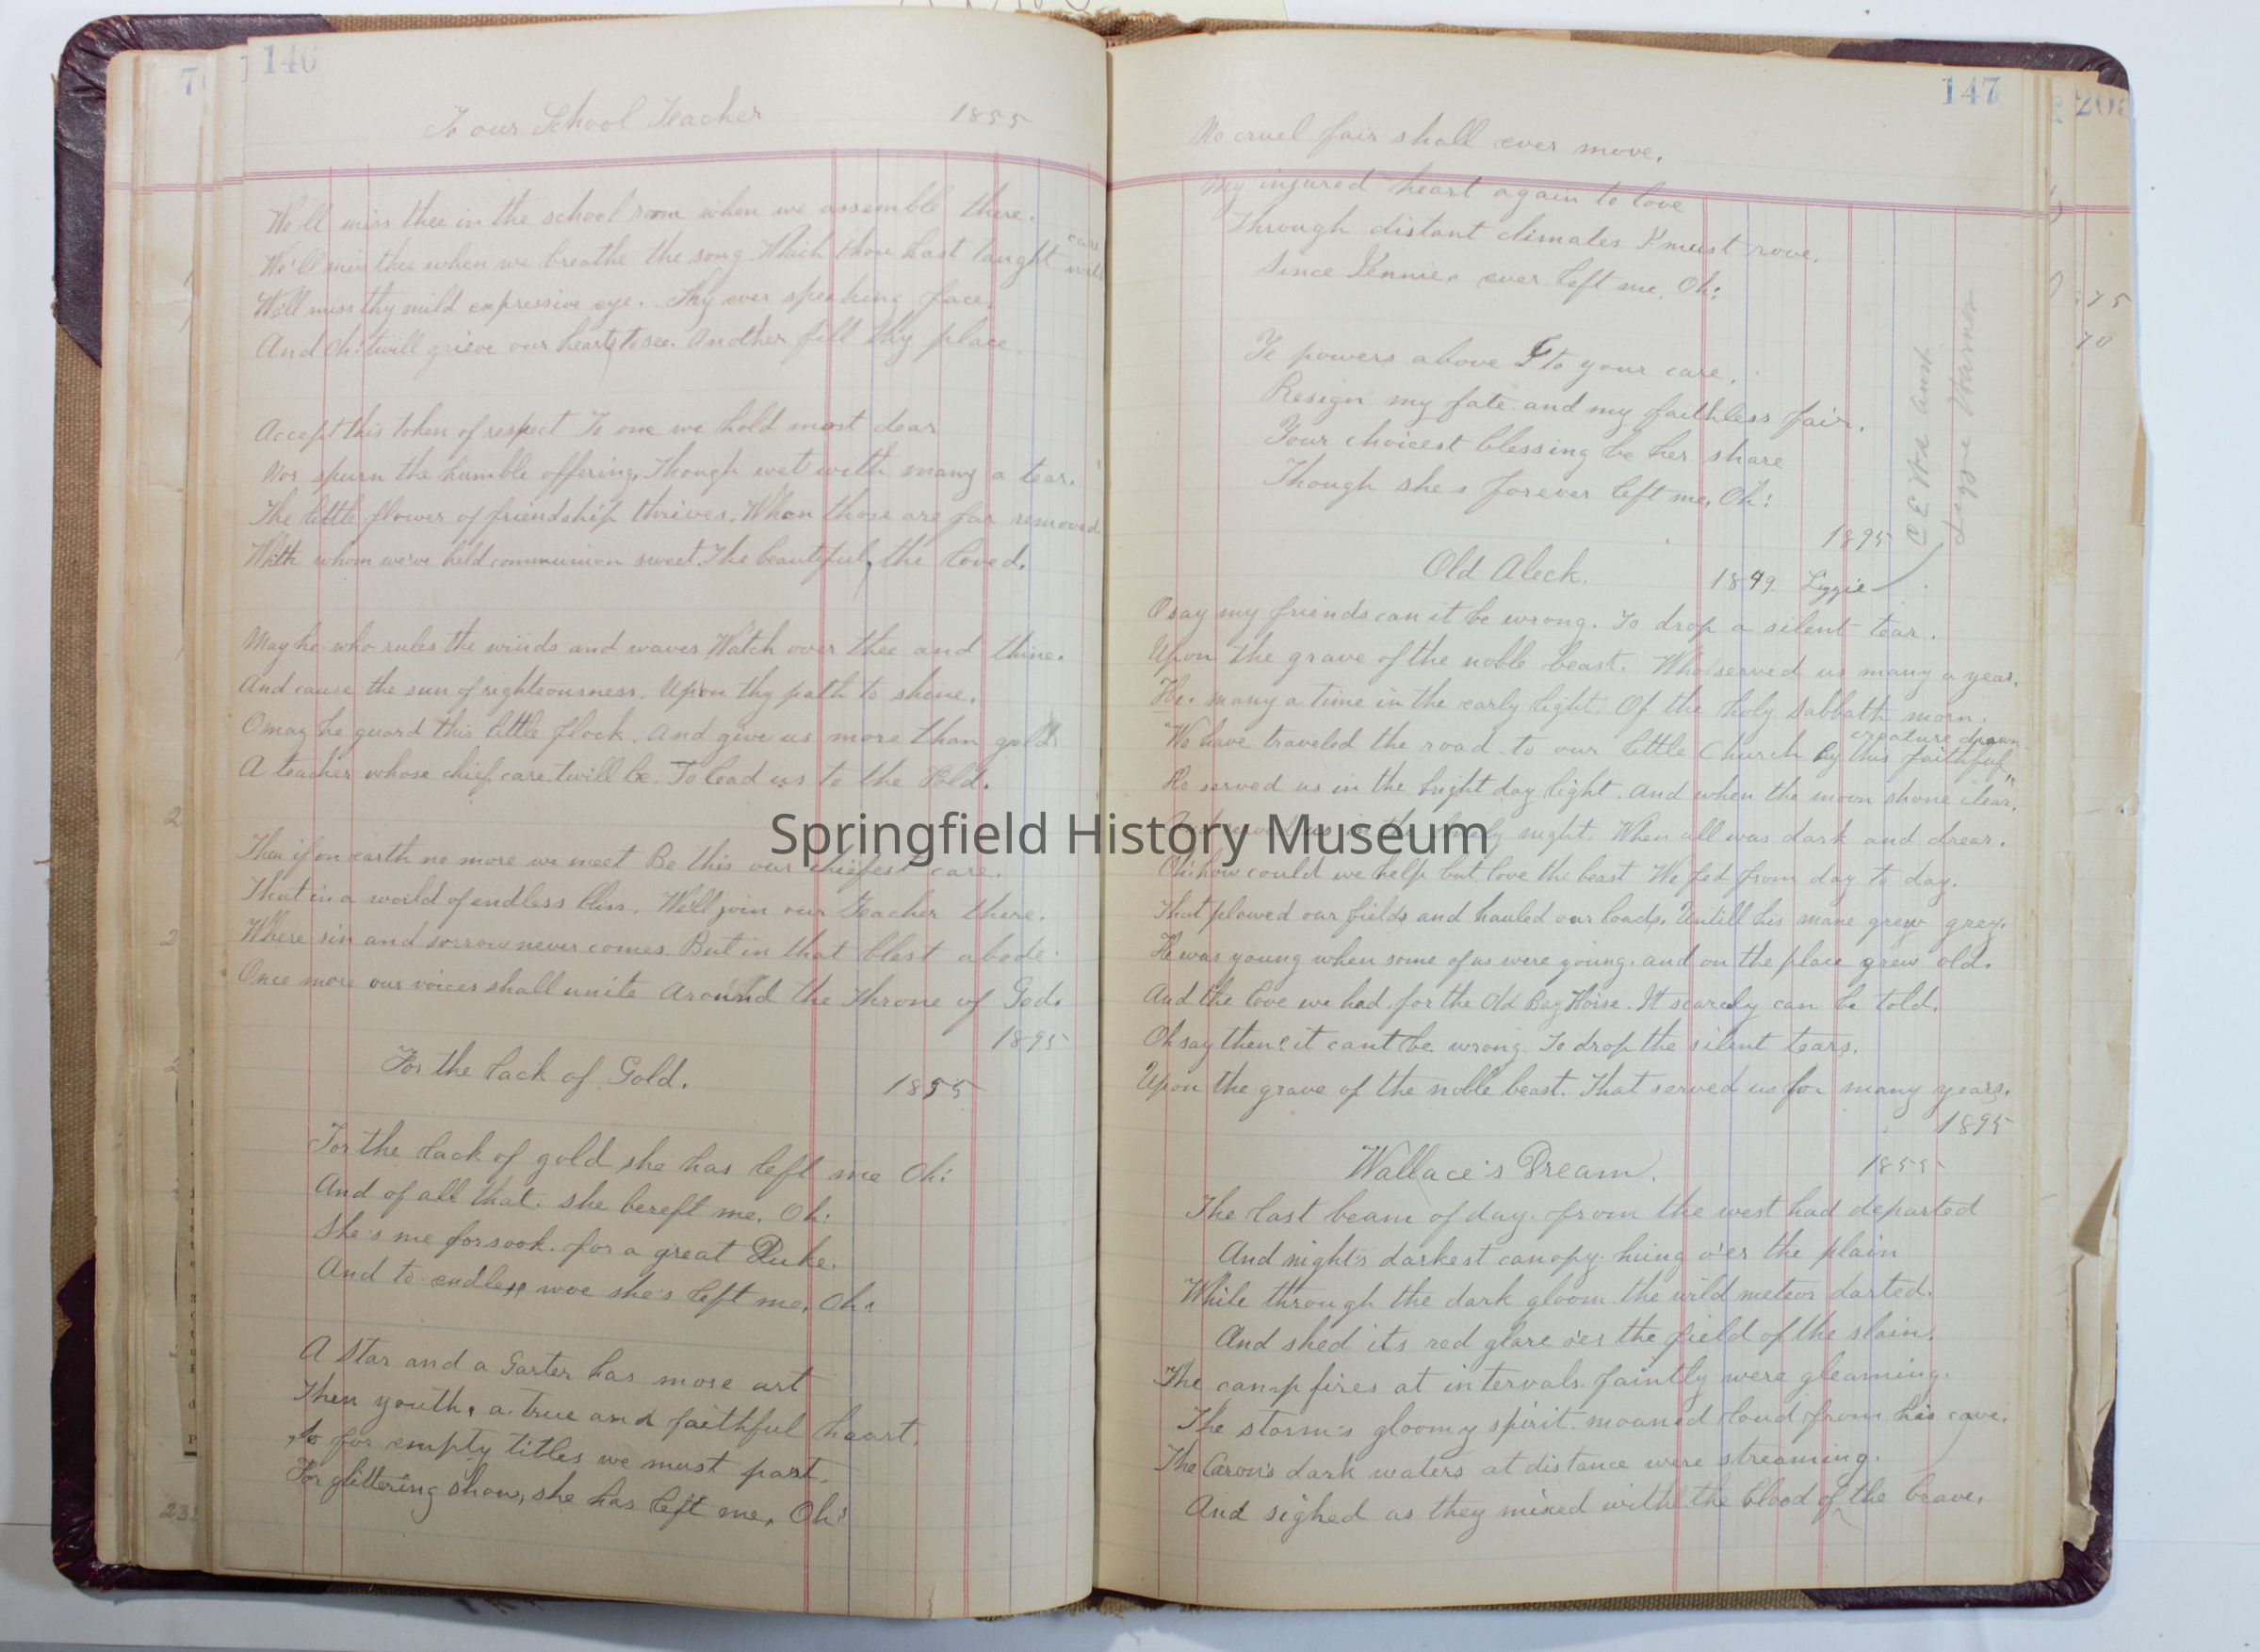 146
To our School Teacher 1855
We'll miss thee in the school room when we assemble there.
We'll miss thee when we breathe the song Which thou hast taught with care
We'll miss thy mild expressive eye. Thy ever speaking face.
And Oh! twill grieve our hearts to see. Another fill thy place.
Accept this token of respect To one we hold most dear
Nor spurn the humble offering, Though wet with many a tear.
The little flower of friendship thrives. When those are far removed
With whom we've held communion sweet. The beautiful, the loved.
May he who rules the winds and waves Watch over thee and thine.
And cause the sun of righteousness. Upon thy path to shine.
O may he guard this little flock. And give us more than gold
A teacher whose chief care twill be. To lead us to the Fold.
Then if on earth no more we meet Be this our chiefest care.
That in a world of endless bliss. We'll join our teacher there.
Where sin and sorrow never comes But in that blest abode.
Once more our voices shall unite Around the Throne of God.
1895
For the lack of Gold. 1855
For the lack of gold she has left me Oh!
And of all that she bereft me. Oh!
She's me forsook. for a great Duke.
And to endless woe she's left me, Oh!
A Star and a Garter has more art
Then youth, a true and faithful heart.
So for empty titles we must part.
For glittering show, she has left me, Oh!
147
No cruel fair shall ever move.
My injured heart again to love
Through distant climates I must rove.
Since Jennies ever left me, Oh!
Ye powers above I to your care.
Resign my fate and my faithless fair.
Your choicest blessing be her share
Though she s forever left me, Oh!
1895
Old Aleck. 1849 Lizzie
O say my friends can it be wrong. To drop a silent tear.
Upon the grave of the noble beast. Who served us many a year.
He. many a time in the early light. Of the holy Sabbath morn.
We have traveled the road to our little Church by this faithful creature drawn
He served us in the bright day light. And when the moon shone clear.
us in the lonely night. When all was dark and drear.
Oh! how could we help but love the beast We fed from day to day.
That plowed our fields and hauled our loads. Untill his mane grew grey.
He was young when some of us were young. and on the place grew old.
And the love we had for the Old Bay Horse. It scarcely can be told.
Oh say then! it cant be wrong. To drop the silent tears.
Upon the grave of the noble beast. That served us for many years.
1895
Wallace's Dream. 1855
The last beam of day. from the west had departed
And night's darkest canopy hung o'er the plain
While through the dark gloom the wild meteor darted.
And shed its red glare o'er the field of the slain.
The camp fires at intervals faintly were gleaming.
The storm's gloomy spirit moaned loud from his cave.
The Caron's dark waters at distance were streaming.
And sighed as they mixed with the blood of the brave.
Springfield History Museum